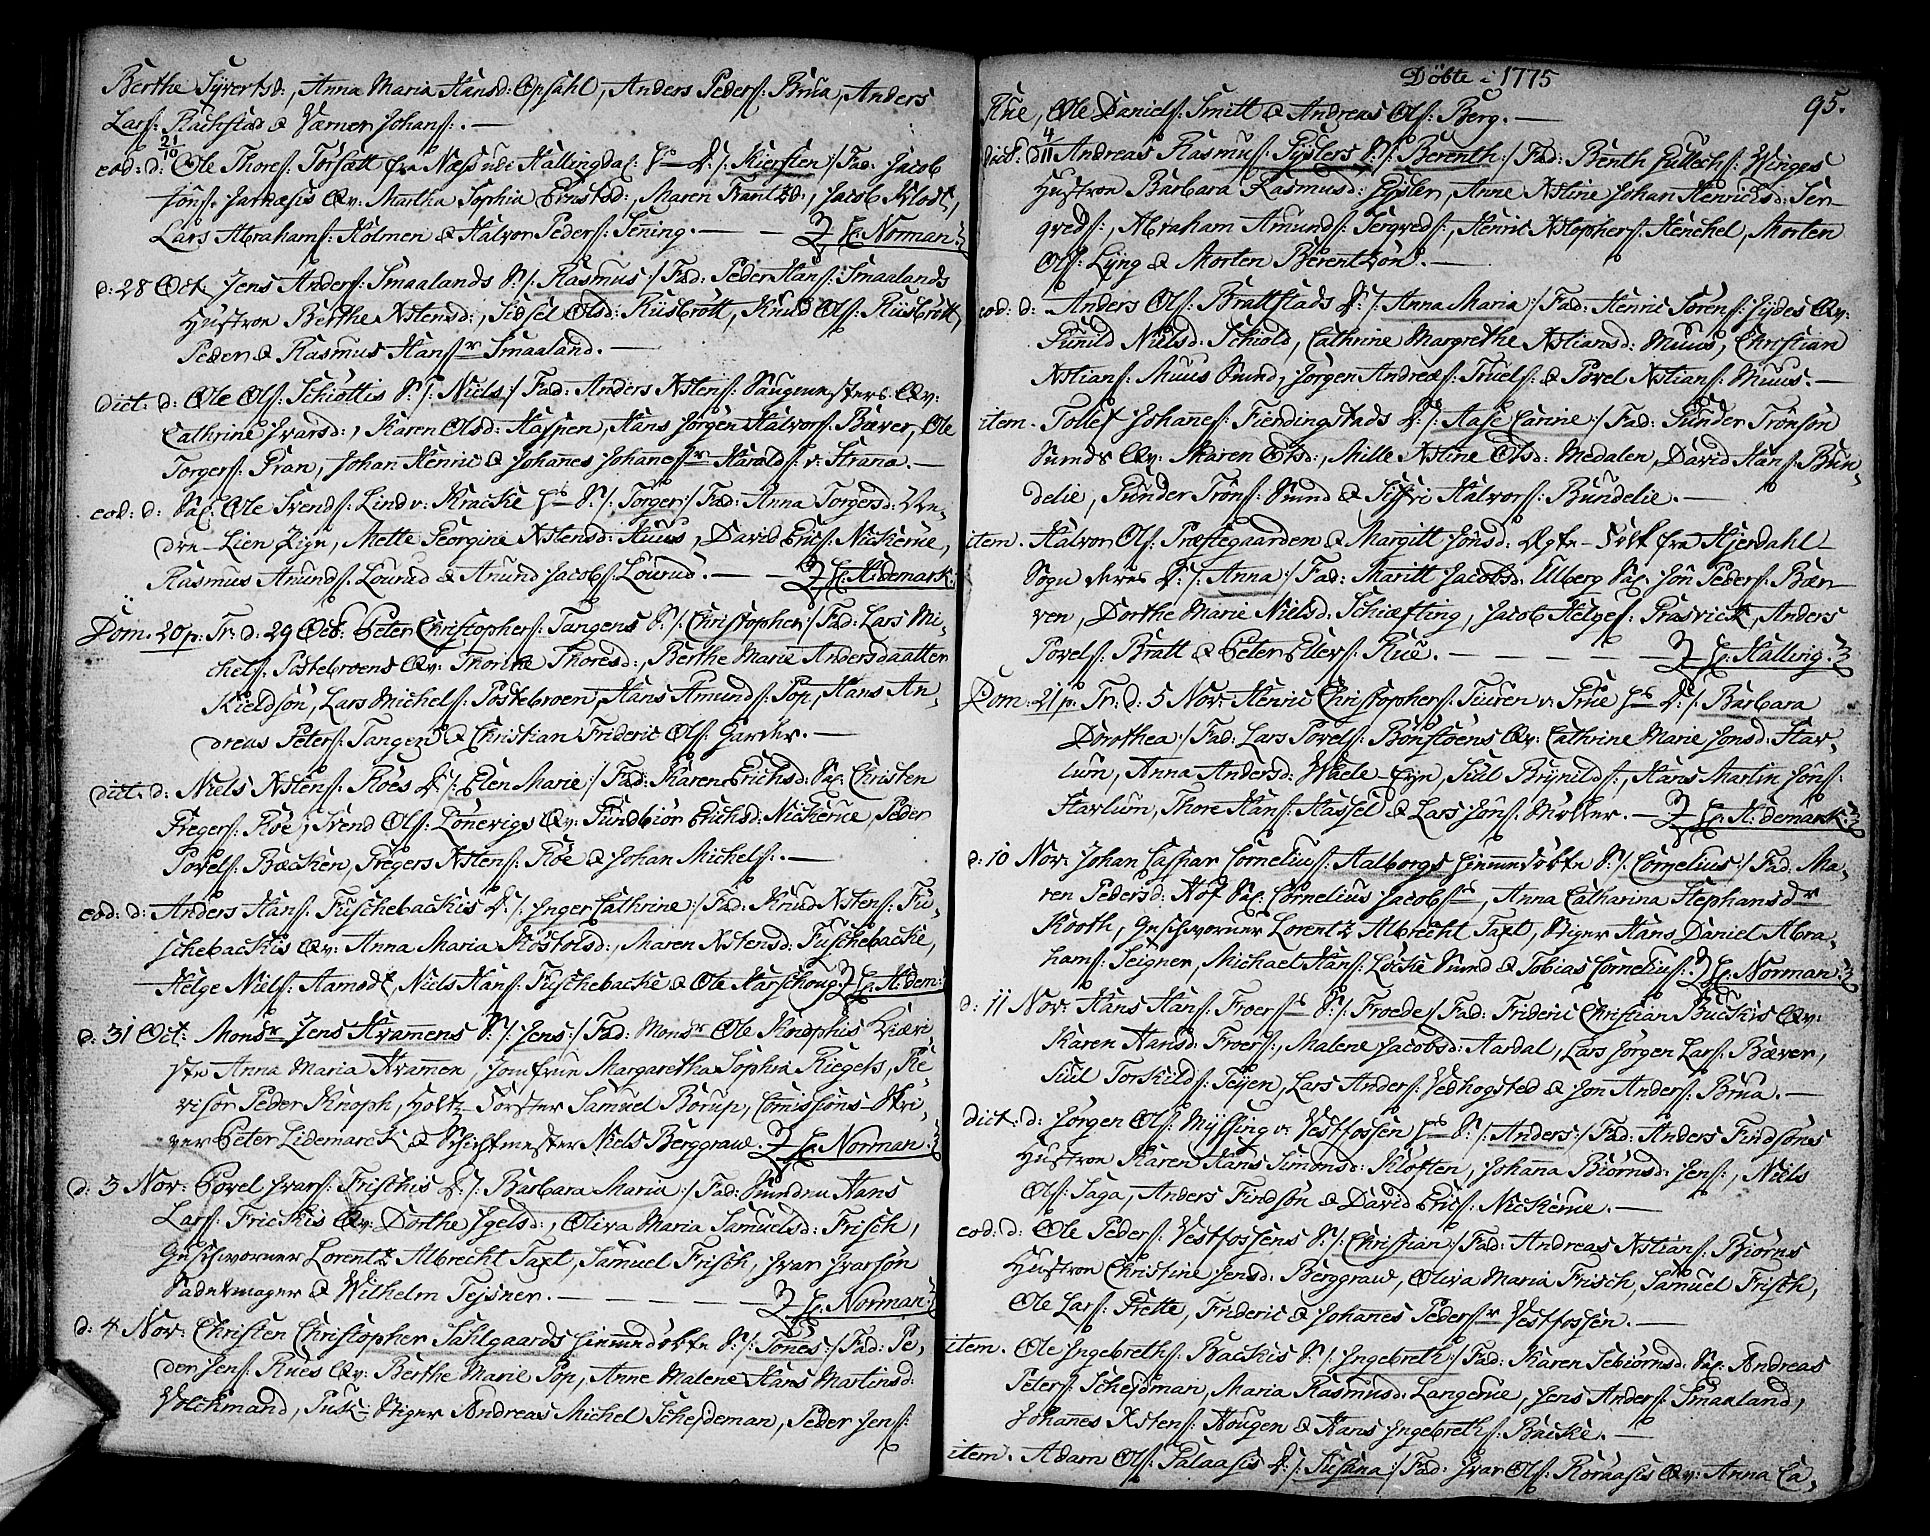 Berthe Syvertsd:, Anna Maria Hansd: Opsahl, Anders Peders: Brua, Anders
Lars: Rachstad & Værner Johans:. —
eod: d: 21/10 Ole Thores: Torsatt fra Næss udi Hallingdal D:/: Kiersten:/ Fad: Jacob
Jons: Jarnæsis Qv: Martha Sophia Ernstsd:, Maren Frantzd:, Jacob Klodt,
Lars Abrahams: Holmen & Halvor Peders: Tening. — — H: Norman.
d: 28 Oct: Jens Anders: Smaalands S:/: Rasmus:/ Fad: Peder Hans: Smaalands
Hustroe Berthe Xstensd:, Sidsel Olsd: Rusbrott, Knud Ols: Ruusbrott,
Peder & Rasmus Hans:r Smaaland. —
dict: d: Ole Ols: Schiottis S:/: Niels:/ Fad: Anders Xstens: Saugmesters Qv:
Cathrine Ivarsd:, Karen Olsd: Haspen, Hans Jørgen Halvors: Bæver, Ole
Torgers: Pran, Johan Henric & Johannes Johanes:r Haralds: v: Strana. —
eod: d: Sal: Ole Svends: Lind v: Kracke S:/: Torger:/ Fad: Anna Torgersd:
dre-Lien Pige, Mette Georgine Xstensd: Huus, David Erics: Nickerue,
Rasmus Anunds: Lourud & Anund Jacobs: Lourud. — — H: Hidemark.
Dom: 20 p: Tr: d: 29 Oct: Peter Christophers: Tangens S:/: Christopher:/ Fad: Lars Mi-
chels: Gostebroens Qv: Thorine Thoresd:, Berthe Marie Andersdaatter
Kieldsøn, Lars Michels: Gostebroen, Hans Amunds: Pop, Hans An-
dreas Peters: Tangen & Christian Frideric Ols: Garder. —
dict: d: Niels Xstens: Roes D:/: Elen Marie:/ Fad: Karen Erichsd: Sal: Christen
Gregers: Røe, Svend Ols: Lonevigs Qv: Gundbiør Erichsd: Nickerue, Peder
Povels: Backen, Gregers Xstens: Røe & Johan Michels:. —
eod: d: Anders Hans: Fuschebackis D:/: Inger Cathrine:/ Fad: Knud Xstens: Fu-
schebackis Qv: Anna Maria Kostolsd:, Maren Xstensd: Fuschebacke,
Helge Niels: Hamodt, Niels Hans: Fuschebacke & Ole Narschoug. H: Hidem:
d: 31 Oct: Monsr Jens Kramens S:/: Jens:/ Fad: Monsr Ole Knophis Kiæri-
ste Anna Maria Kramen, Jomfrue Margaretha Sophia Riegels, Re-
visor Peder Knoph, Holtz-Forster Samuel Borup, Comissions-Skri-
ver Peter Lidemarck & Schichtmester Niels Berggraw. H: Norman.
d: 3 Nov: Povel Ivars: Frischis D:/: Barbara Maria:/ Fad: Hans
Lars: Frickis Qv: Dorthe Igelsd:, Oliva Maria Samuelsd: Frisch,
Geschworner Lorentz Albrecht Taxt, Samuel Frisch, Ivar Ivarsøn
Sadelmager & Wilhelm Tejsner. — — — H: Norman.
d: 4 Nov: Christen Christopher Dahlgaards hiemmedøbte S:/: Tones:/ Fad: Pe-
der Jens: Rues Qv: Berthe Marie Pop, Anne Malene Hans Martinsd:
Volckmand, Stiger Andreas Michel Schejdeman, Peder Jens:
Døbte i 1775
95.
Rue, Ole Daniels: Smitt & Andreas Ols: Berg. —
dict: d: 4/11 Andreas Rasmus: Gyslers S:/: Berenth:/ Fad: Benth Gullechs: Winges
Hustroe Barbara Rasmusd: Gysler, Anne Xstine Johan Henrichsd: Ser-
qveds:, Abraham Amunds: Serqveds:, Henric Xstophers: Henchel, Morten
Ols: Lyng & Morten Berentzøn. —
eod: d: Anders Ols: Brattstads D:/: Anna Maria:/ Fad: Henric Sørens: Gydes Qv:
Gunild Nielsd: Schiold, Cathrine Margrethe Xstiansd: Muus, Christian
Xstians: Muus Svend, Jørgen Andreæs: Truels: & Povel Xstians: Muus. —
item. Tollef Johannes: Fierdingstads D:/: Aase Carine:/ Fad: Gunder Trønsøn
Svends Qv: Maren Olsd:, Mille Xstine Olsd: Medalen, David Hans: Bun-
delie, Gunder Trøns: Svend & Sifri Halvors: Bundelie. —
item. Halvor Ols: Præstegaarden & Margitt Jonsd: Ægte-Folk fra Hjerdahl
Sogn deres D:/: Anna:/ Fad: Maritt Jacobsd: Ulberg Sal: Jon Peders: Bær-
ven, Dorthe Marie Nielsd: Schiæfting, Jacob Helges: Prasvick, Anders
Povels: Bratt & Peter Ellevs: Rue. — — — H: Halling.
Dom: 21 p: Tr: d: 5 Nov: Henric Christophers: Tuuren v: Grue D:/: Barbara
Dorothea:/ Fad: Lars Povels: Bonstoens Qv: Cathrine Marie Jonsd: Hav-
lum, Anna Andersd: Waele-Eyn, Siul Brynilds:, Hans Martin Jons:
Havlum, Thore Hans: Hassel & Lars Jons: Møller. — H: Hidemark.
d: 10 Nov: Johan Caspar Cornelius: Aalborgs hiemmedøbte S:/: Cornelius:/ Fad: Ma-
ren Pedersd: Hof Sal: Cornelius Jacobs:, Anna Catharina Stephansdr
Rooth, Geschworner Lorentz Albrecht Taxt, Stiger Hans Daniel Abra-
hams: Teigner, Michael Hans: Løcke Svend & Tobias Cornelius: H: Norman.
d: 11 Nov: Hans Hans: Froers: S:/: Froede:/ Fad: Frideric Christian Buckis Qv:
Karen Hansd: Froers:, Malene Jacobsd: Aardal, Lars Jørgen Lars: Bæver,
Siul Torskilds: Teijen, Lars Anders: Vedhogsted & Jon Anders: Brua. —
dict: d: Jørgen Ols: Myssing v: Vestfossen S:/: Anders:/ Fad: Anders Findsøns
Hustroe Karen Hans Simonsd: Kloften, Johana Biornsd: Jens:, Niels
Ols: Saga, Anders Findsøn & David Erics: Nickerue. —
eod: d: Ole Peders: Vestfossens S:/: Christian:/ Fad: Andreas Xstians: Biørns
Hustroe Christine Jensd: Berggraw, Oliva Maria Frisch, Samuel Frisch,
Ole Lars: Grette, Frideric & Johanes Peders:r Vestfossen. —
item. Ole Ingebreths: Backis S:/: Ingebreth:/ Fad: Karen Sebiørnsd: Sal: Andreas
Peters: Schejdman, Maria Rasmusd: Langerue, Jens Anders: Smaaland,
Johannes Xstens: Hougen & Hans Ingebreths: Backe. —
item. Adam Ols: Palaasis D:/: Susana:/ Fad: Ivar Ols: Roraasis Qv: Anna Ca-